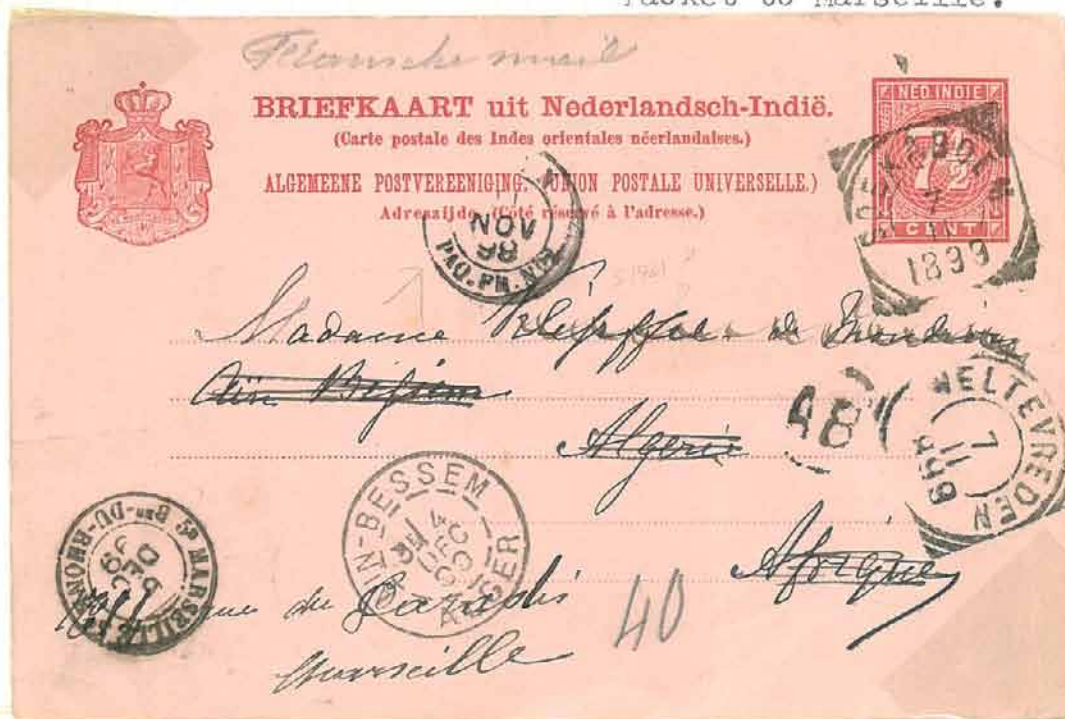 Packet to Marseille.
Fransche mail
BRIEFKAART uit Nederlandsch-Indië.
(Carte postale des Indes orientales néerlandaises.)
ALGEMEENE POSTVEREENIGING. (UNION POSTALE UNIVERSELLE.)
Adreszijde. (Côté réservé à l'adresse.)
NED. INDIE
7½
CENT
7
1899
NOV
PAQ. FR. No
Madame de
Algerie
48
WELTEVREDEN
7
11
899
AIN-BESSEM
4
DEC
ALGER
Afrique
MARSEILLE
Bes-DU-RHONE
DEC
rue du
Marseille
40